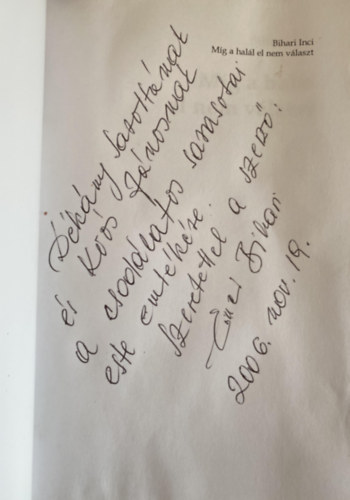 Bihari Inci
Míg a halál el nem választ
Dékány Saroltának
és Koós Jánosnak
a csodálatos samsotai
este emlékére.
Szeretettel a szerző:
Inci Bihari
2006. nov. 19.